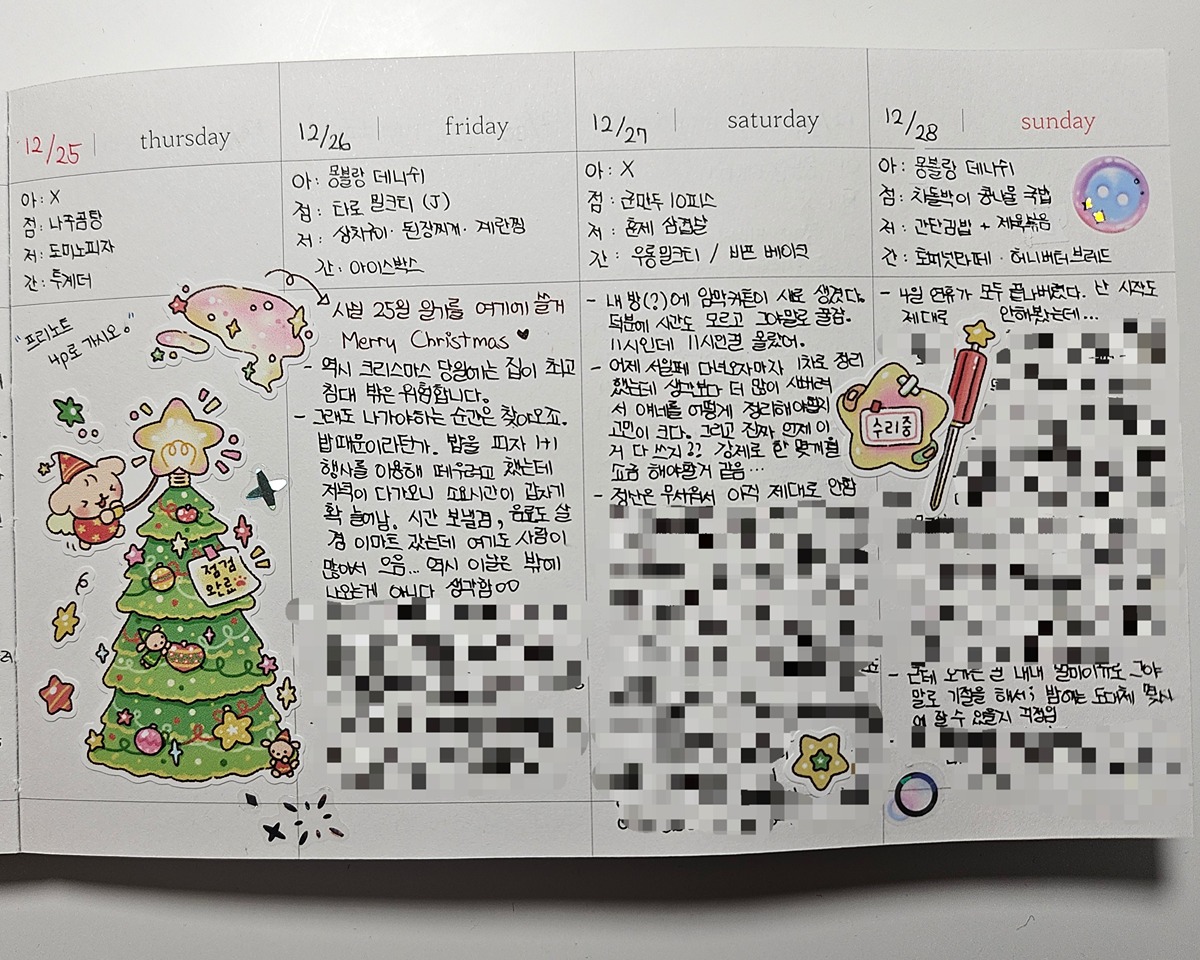 12/25 thursday
아: X
점: 나주곰탕
저: 도미노피자
간: 투게더
"프리노트
4p로 가시오."
점검
완료
12/26 friday
아: 몽블랑 데니쉬
점: 타로 밀크티 (J)
저: 삼치구이· 된장찌개· 계란찜
간: 아이스박스
사실 25일 일기를 여기에 쓸게
Merry Christmas ♥
- 역시 크리스마스 당일에는 집이 최고
침대 밖은 위험합니다.
- 그래도 나가야하는 순간은 찾아오죠.
밥때문이라던가. 밥을 피자 1+1
행사를 이용해 떼우려고 했는데
저녁이 다가오니 소요시간이 갑자기
확 늘어남. 시간 보낼겸, 음료도 살
겸 이마트 갔는데 여기도 사람이
많아서 으음... 역시 이날은 밖에
나오는게 아니다 생각함
12/27 saturday
아: X
점: 군만두 10피스
저: 훈제 삼겹살
간: 우롱밀크티 / 비프 베이크
- 내 방(?)에 암막커튼이 새로 생겼다.
덕분에 시간도 모르고 그야말로 꿀잠.
11시인데 11시인걸 몰랐어.
- 어제 서일페 다녀오자마자 1차로 정리
했는데 생각보다 더 많이 사버려
서 얘네를 어떻게 정리해야할지
고민이 크다. 그리고 진짜 언제 이
거 다 쓰지?? 강제로 한 몇개월
소금 해야할거 같음...
- 정산은 무서워서 아직 제대로 안함
12/28 sunday
아: 몽블랑 데니쉬
점: 차돌박이 콩나물 국밥
저: 간단김밥 + 제육볶음
간: 토피넛라떼 · 허니버터브레드
- 4일 연휴가 모두 끝나버렸다. 난 시작도
제대로 안해봤는데...
수리중
- 근데 오가는 길 내내 멀미이슈로 그야
말로 기절을 해서; 밤에는 도대체 몇시
에 잘 수 있을지 걱정임